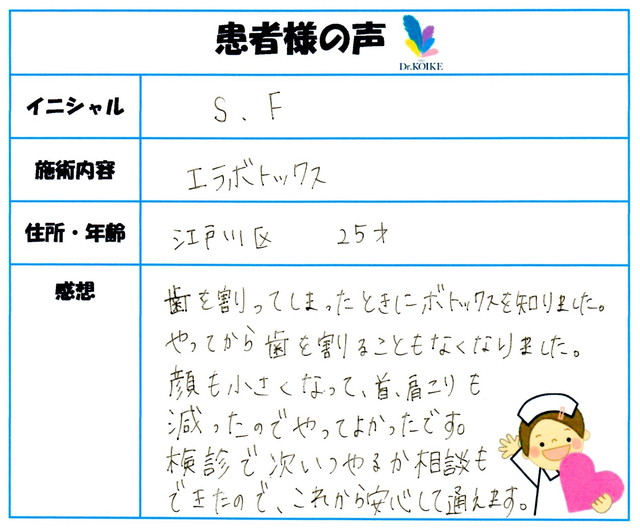 患者様の声
Dr.KOIKE
イニシャル
S、F
施術内容
エラボトックス
住所・年齢
江戸川区 25才
感想
歯を割ってしまったときにボトックスを知りました。
やってから歯を割ることもなくなりました。
顔も小さくなって、首、肩こりも
減ったのでやってよかったです。
検診で次いつやるか相談も
できたので、これから安心して通えます。